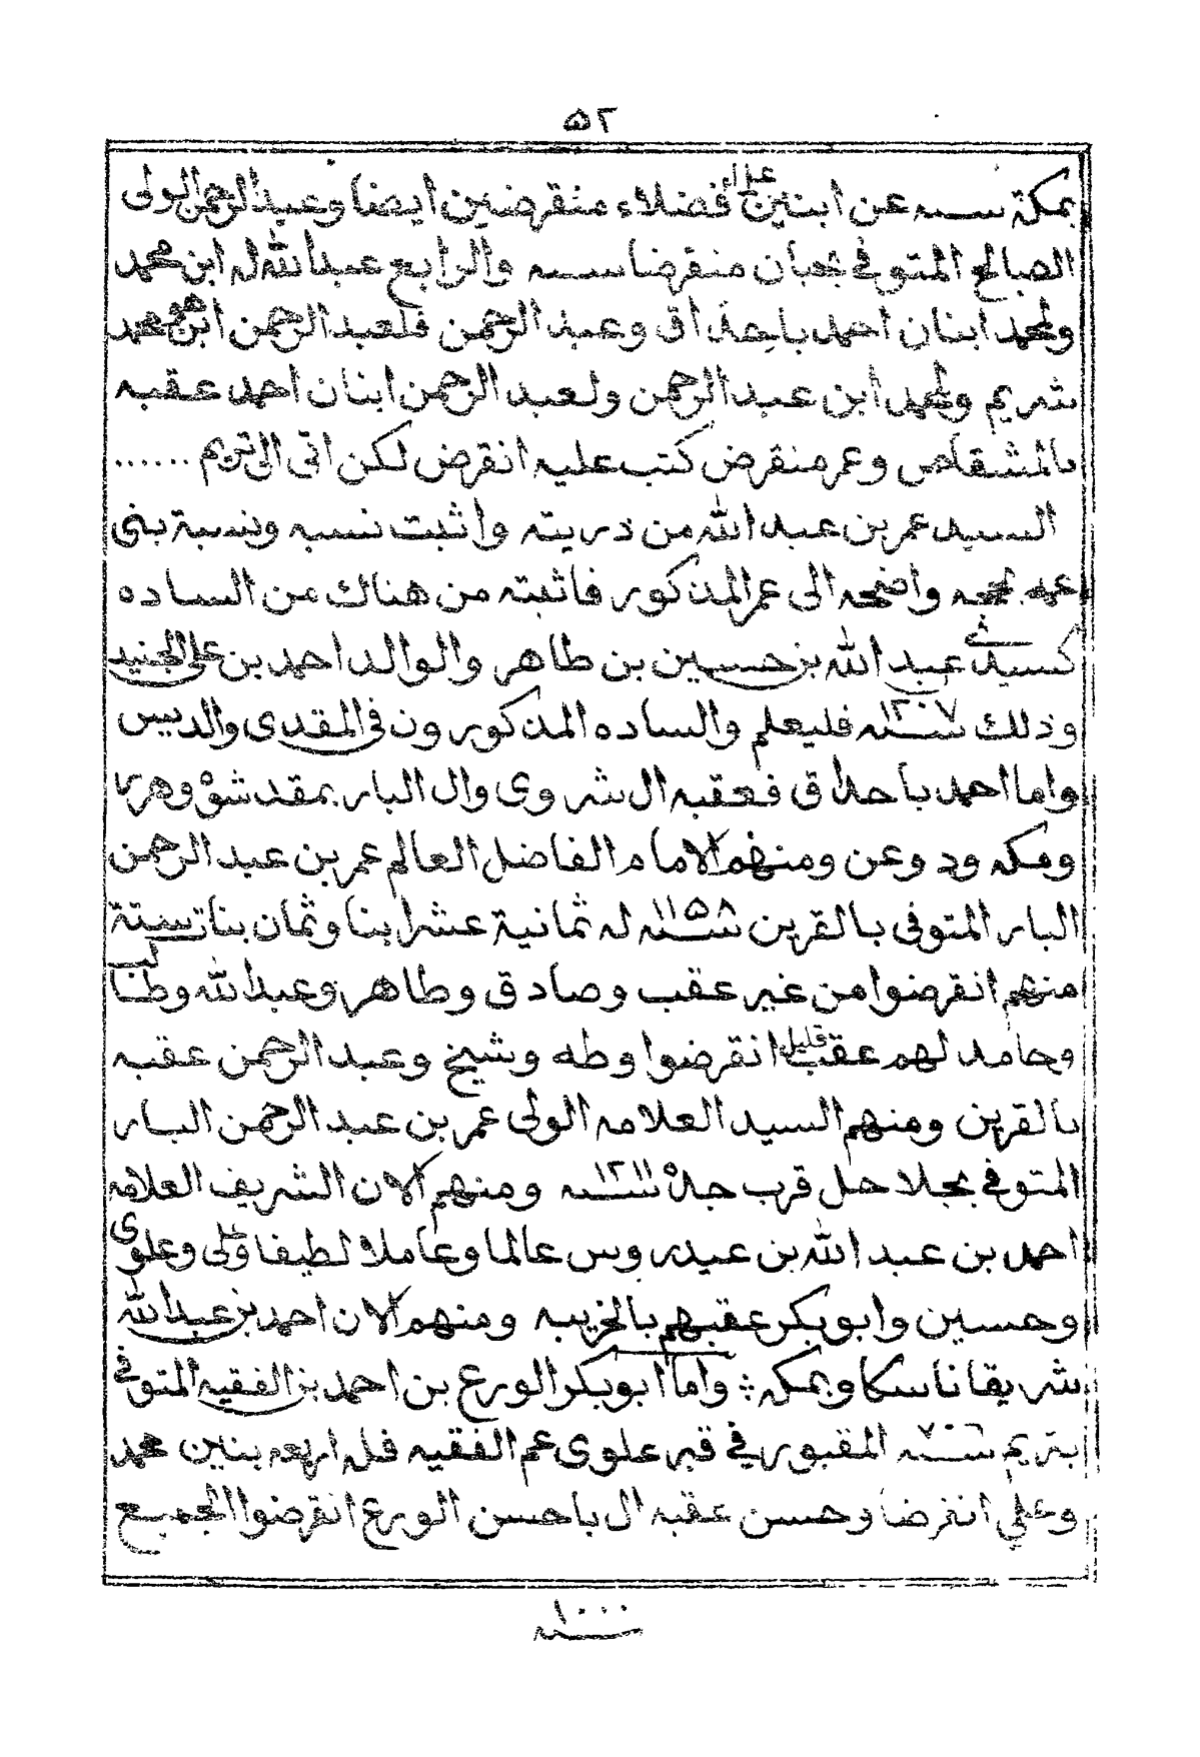 ٥٢
بمكة سنه عن ابنين علماء فضلاء منقرضين ايضا وعبد الرحمن الولى
الصالح المتوفي بجبان منقرضا سنه والرابع عبد الله له ابن محمد
ولمحمد ابنان احمد باحذاق وعبد الرحمن فلعبد الرحمن ابن هو محمد
شريم ولمحمد ابن عبد الرحمن ولعبد الرحمن ابنان احمد عقبه
بالمشقاص وعمر منقرض كتب عليه انقرض لكن اتى الى تريم ......
السيد عمر بن عبد الله من ذريته واثبت نسبه ونسبة بنى
عمه بحجه واضحه الى عمر المذكور فاثبته من هناك من الساده
كسيدي عبد الله بن حسين بن طاهر والوالد احمد بن على الجنيد
وذلك سنه ١٢٠٧ فليعلم والساده المذكورون في المقدى والديس
واما احمد باحذاق فعقبه ال شروى وال البار بمقدشوه وهرر
ومكه ودوعن ومنهم الامام الفاضل العالم عمر بن عبد الرحمن
البار المتوفى بالقرين سنه ١١٥٨ له ثمانية عشر ابنا وثمان بنات ستة
منهم انقرضوا من غير عقب وصادق وطاهر وعبد الله وطالب
وحامد لهم عقب قليل انقرضوا وطه وشيخ وعبد الرحمن عقبه
بالقرين ومنهم السيد العلامه الولى عمر بن عبد الرحمن البار
المتوفي بجلاجل قرب جده سنه ١٢١١ ومنهم الان الشريف العلامه
احمد بن عبد الله بن عيدروس عالما وعاملا لطيفا وعلى وعلوى
وحسين وابوبكر عقبهم بالخريبه ومنهم الان احمد بن عبد الله
شريفا ناسكا وبمكه واما ابوبكر الورع بن احمد بن الفقيه المتوفي
بتريم سنه ٧٠٦ المقبور في قبر علوى عم الفقيه فله اربعه بنين محمد
وعلي انقرضا وحسن عقبه ال باحسن الورع انقرضوا الجميع
سنه ١٠٠٠